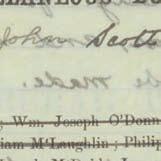 LLANEOUS D
John Scott
be made.
, Wm. Joseph O'Donn
iam M'Laughlin; Philip